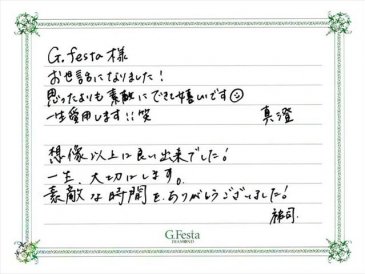 G.festa様
お世話になりました!
思ったよりも素敵にできて嬉しいです☺
一生愛用します!!笑 真澄
想像以上に良い出来でした!
一生、大切にします。
素敵な時間を、ありがとうございました!
祐司.
G.Festa
DIAMOND